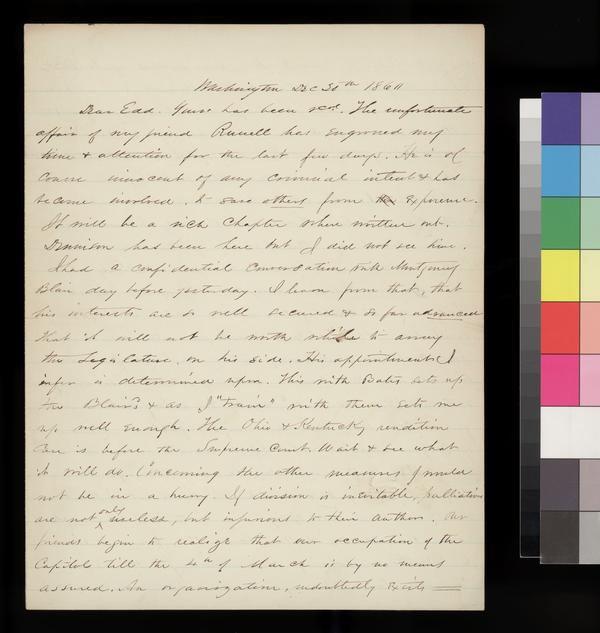 Washington Dec 30th 1860
Dear Edd. Yours has been recd. The unfortunate
affair of my friend Russell has engrossed my
time & attention for the last few days. He is of
course innocent of any criminal intent & has
become involved to save others from the exposure.
It will be a rich chapter when written out.
Dennison has been here but I did not see him.
I had a confidential conversation with Montgomery
Blair day before yesterday. I learn from that, that
his interests are so well secured & so far advanced
that it will not be worth while to annoy
the Legislature, on his side. His appointment I
infer is determined upon. This with Bates sets up
the Blairs & as I "train" with them sets me
up well enough. The Ohio & Kentucky rendition
case is before the Supreme Court. Wait & see what
it will do. Concerning the other measures I would
not be in a hurry. If division is inevitable, palliatives
are not only useless, but injurious to their author. Our
friends begin to realize that our occupation of the
Capitol till the 4th of March is by no means
assured. An organization, undoubtedly exists